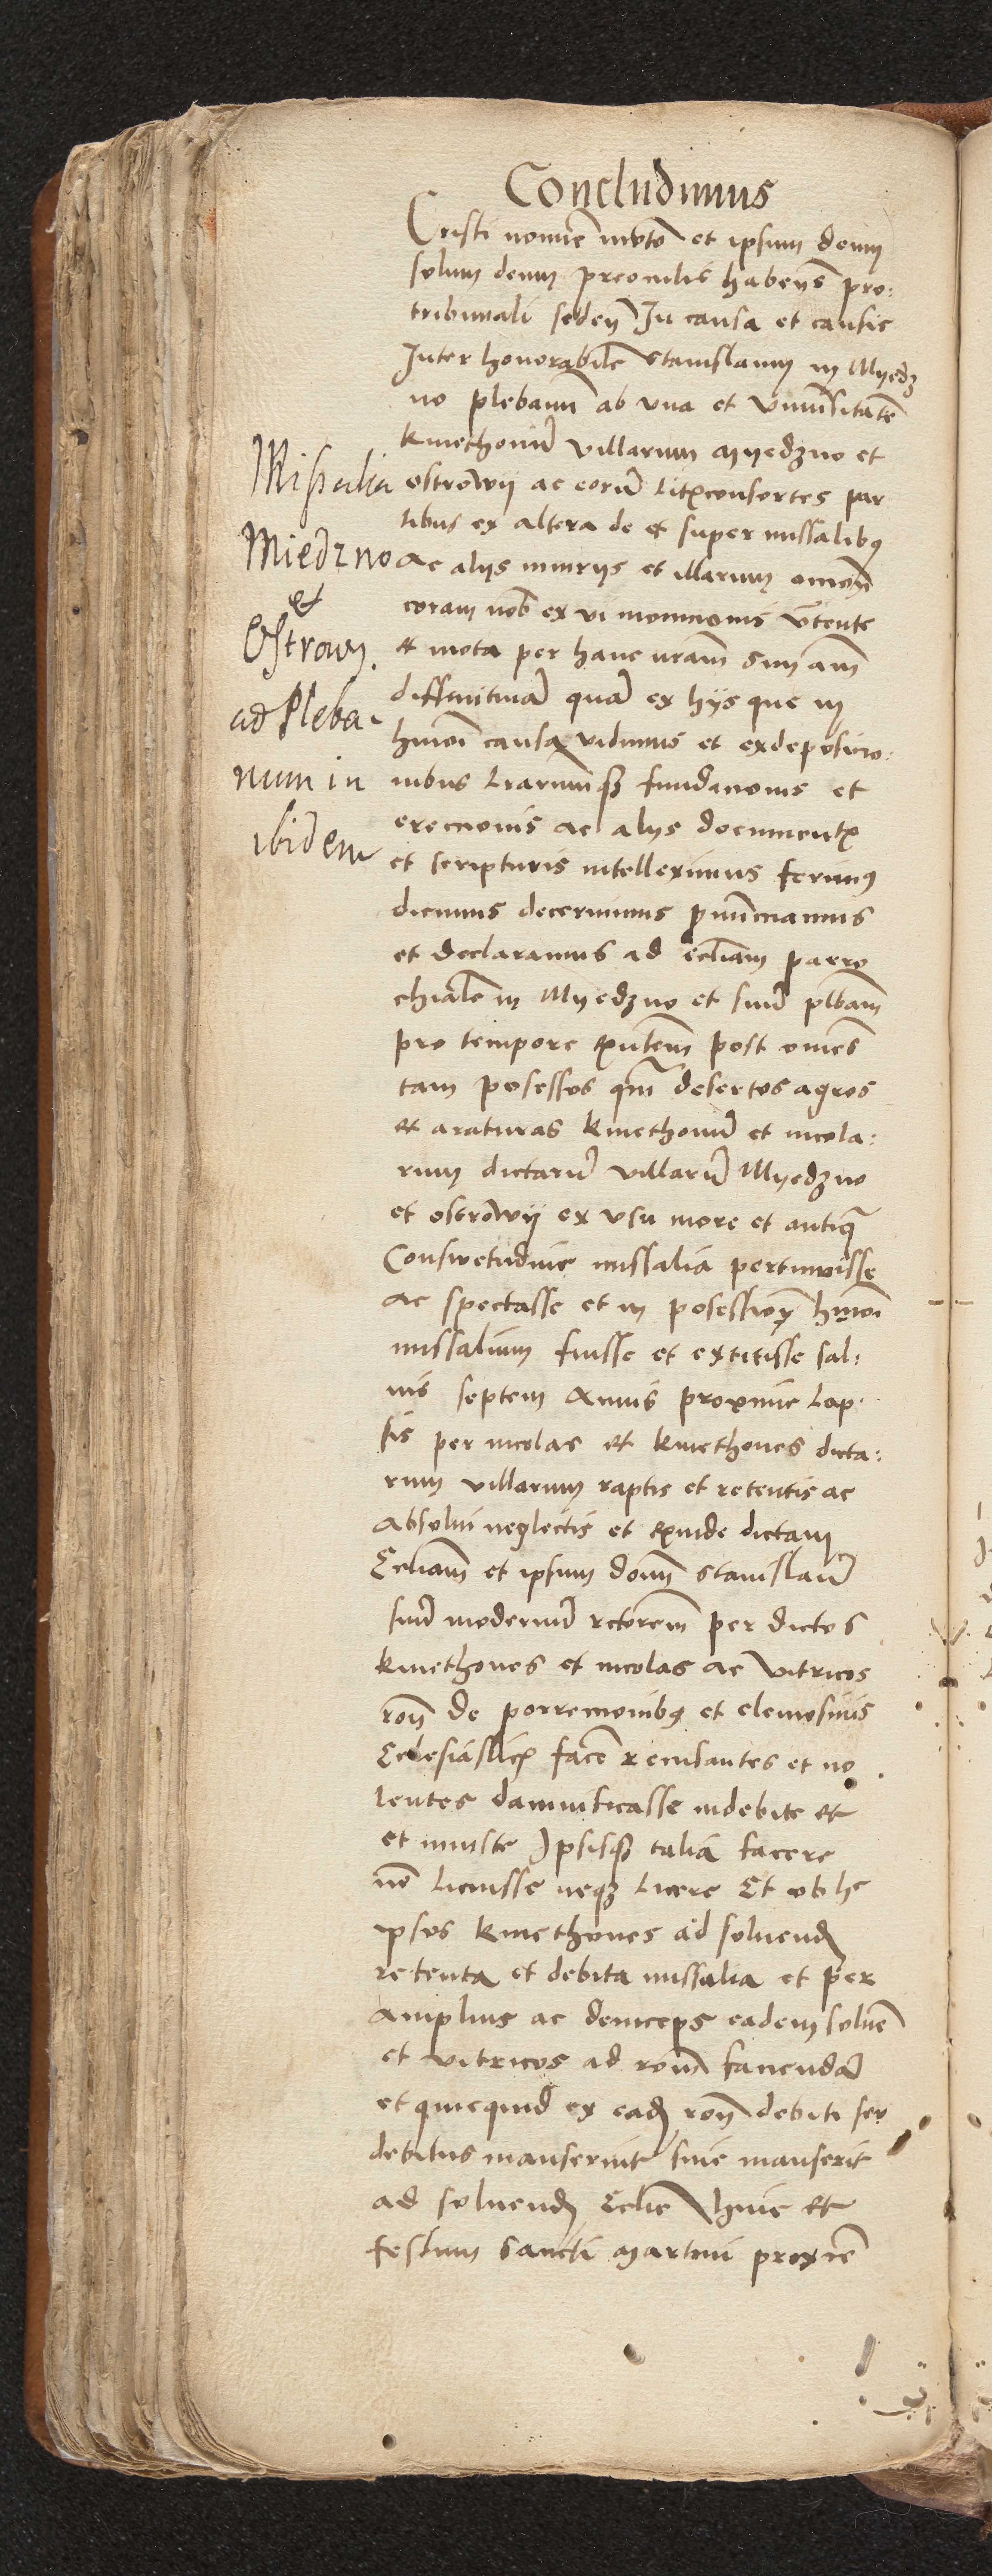 Concludimus
Cristi nomine invto et ipsum deum
solum deum preoculis habens pro:
tribunali seden In causa et causis
Inter honorabile Stanislaum in Myedz
no plebanu ab vna et Vniusitate
kmethonu villarum Myedzno et
ostrowy ac eoru litisconsortes par
tibus ex altera de et super missalibus
Ac alijs iniurijs et illarum
coram nob ex vi monicionis
et mota per hanc nram sniam
diffinitiua qua ex hijs que in
hmoi causa vidimus et exdeposicio:
nibus lrarumq fundacionis et
ereccionis ac alijs documentis
et scripturis intelleximus ferimus
dicimus decernimus pnunciamus
et declaramus ad eccliam parro
chiale in Myedzno et suu plbam
pro tempore exntem post omes
tam posessos qm desertos agros
et araturas kmethonu et incola:
rum dictaru villaru Myedzno
et ostrowy ex vsu more et antiqa
Conswetudine missalia pertinuisse
ac spectasse et in posession hmoi
missalium fuisse et extitisse sal:
uis septem Annis proxime lap
sis per incolas et kmethones dicta:
rum villarum raptis et retentis ac
absolui neglectis et exinde dictam
Ecliam et ipsum domn Stanislau
suu modernu rctorem per dictos
kmethones et incolas ac vitricos
ron de porrecionibus et elemosinis
Eclesiasticis face recusantes et no
lentes damnificasse indebite et
et iniuste Ipsisq talia facere
no licuisse neqz licere Et ob he
ipsos kmethones ad soluend
retenta et debita missalia et per
amplius ac deinceps eadem solue
et vitricos ad ronem faciendam
et quicquid ex ead ron debiti seu
debitus manserint siue manserit
ad soluend Eclie hinc et
festum sancti Martini proxie
Missalia
Miedzno
et
Ostrowy
ad Pleba
num in
ibidem